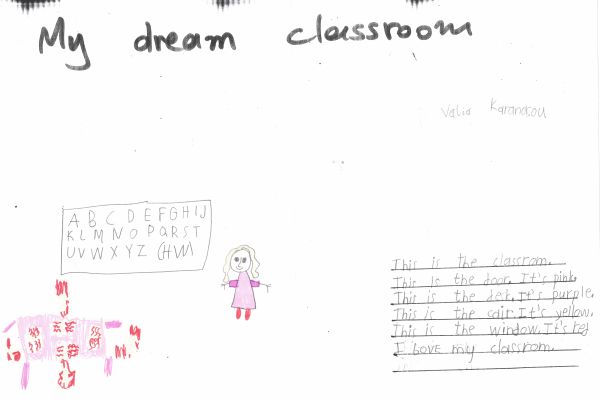 My dream classroom
Valia Karanasou
A B C D E F G H I J
K L M N O P Q R S T
U V W X Y Z (HW)
This is the classrom.
This is the door. It's pink.
This is the det. It's purple.
This is the cair. It's yellow.
This is the window. It's red
I LOVE my classroom.